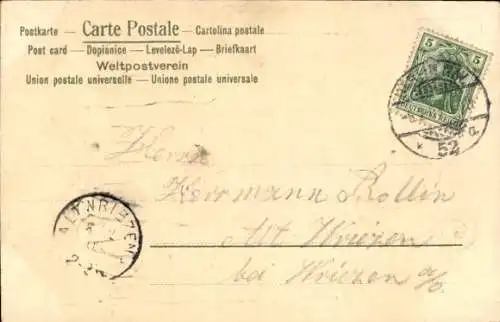 Postkarte — Carte Postale — Cartolina postale
Post card — Dopisnice — Levelező-Lap — Briefkaart
Weltpostverein
Union postale universelle — Unione postale universale
5
5
52
Herrn
Herrmann Rollin
Alt Wriezen
bei Wriezen a/O.
ALTWRIEZEN